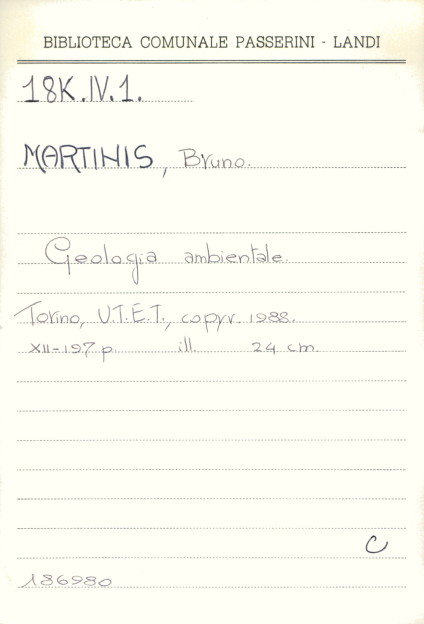 BIBLIOTECA COMUNALE PASSERINI - LANDI
18K.IV.1.
MARTINIS, Bruno.
Geologia ambientale.
Torino, U.T.E.T., copyr. 1988.
XII-197 p. ill. 24 cm.
C
186980